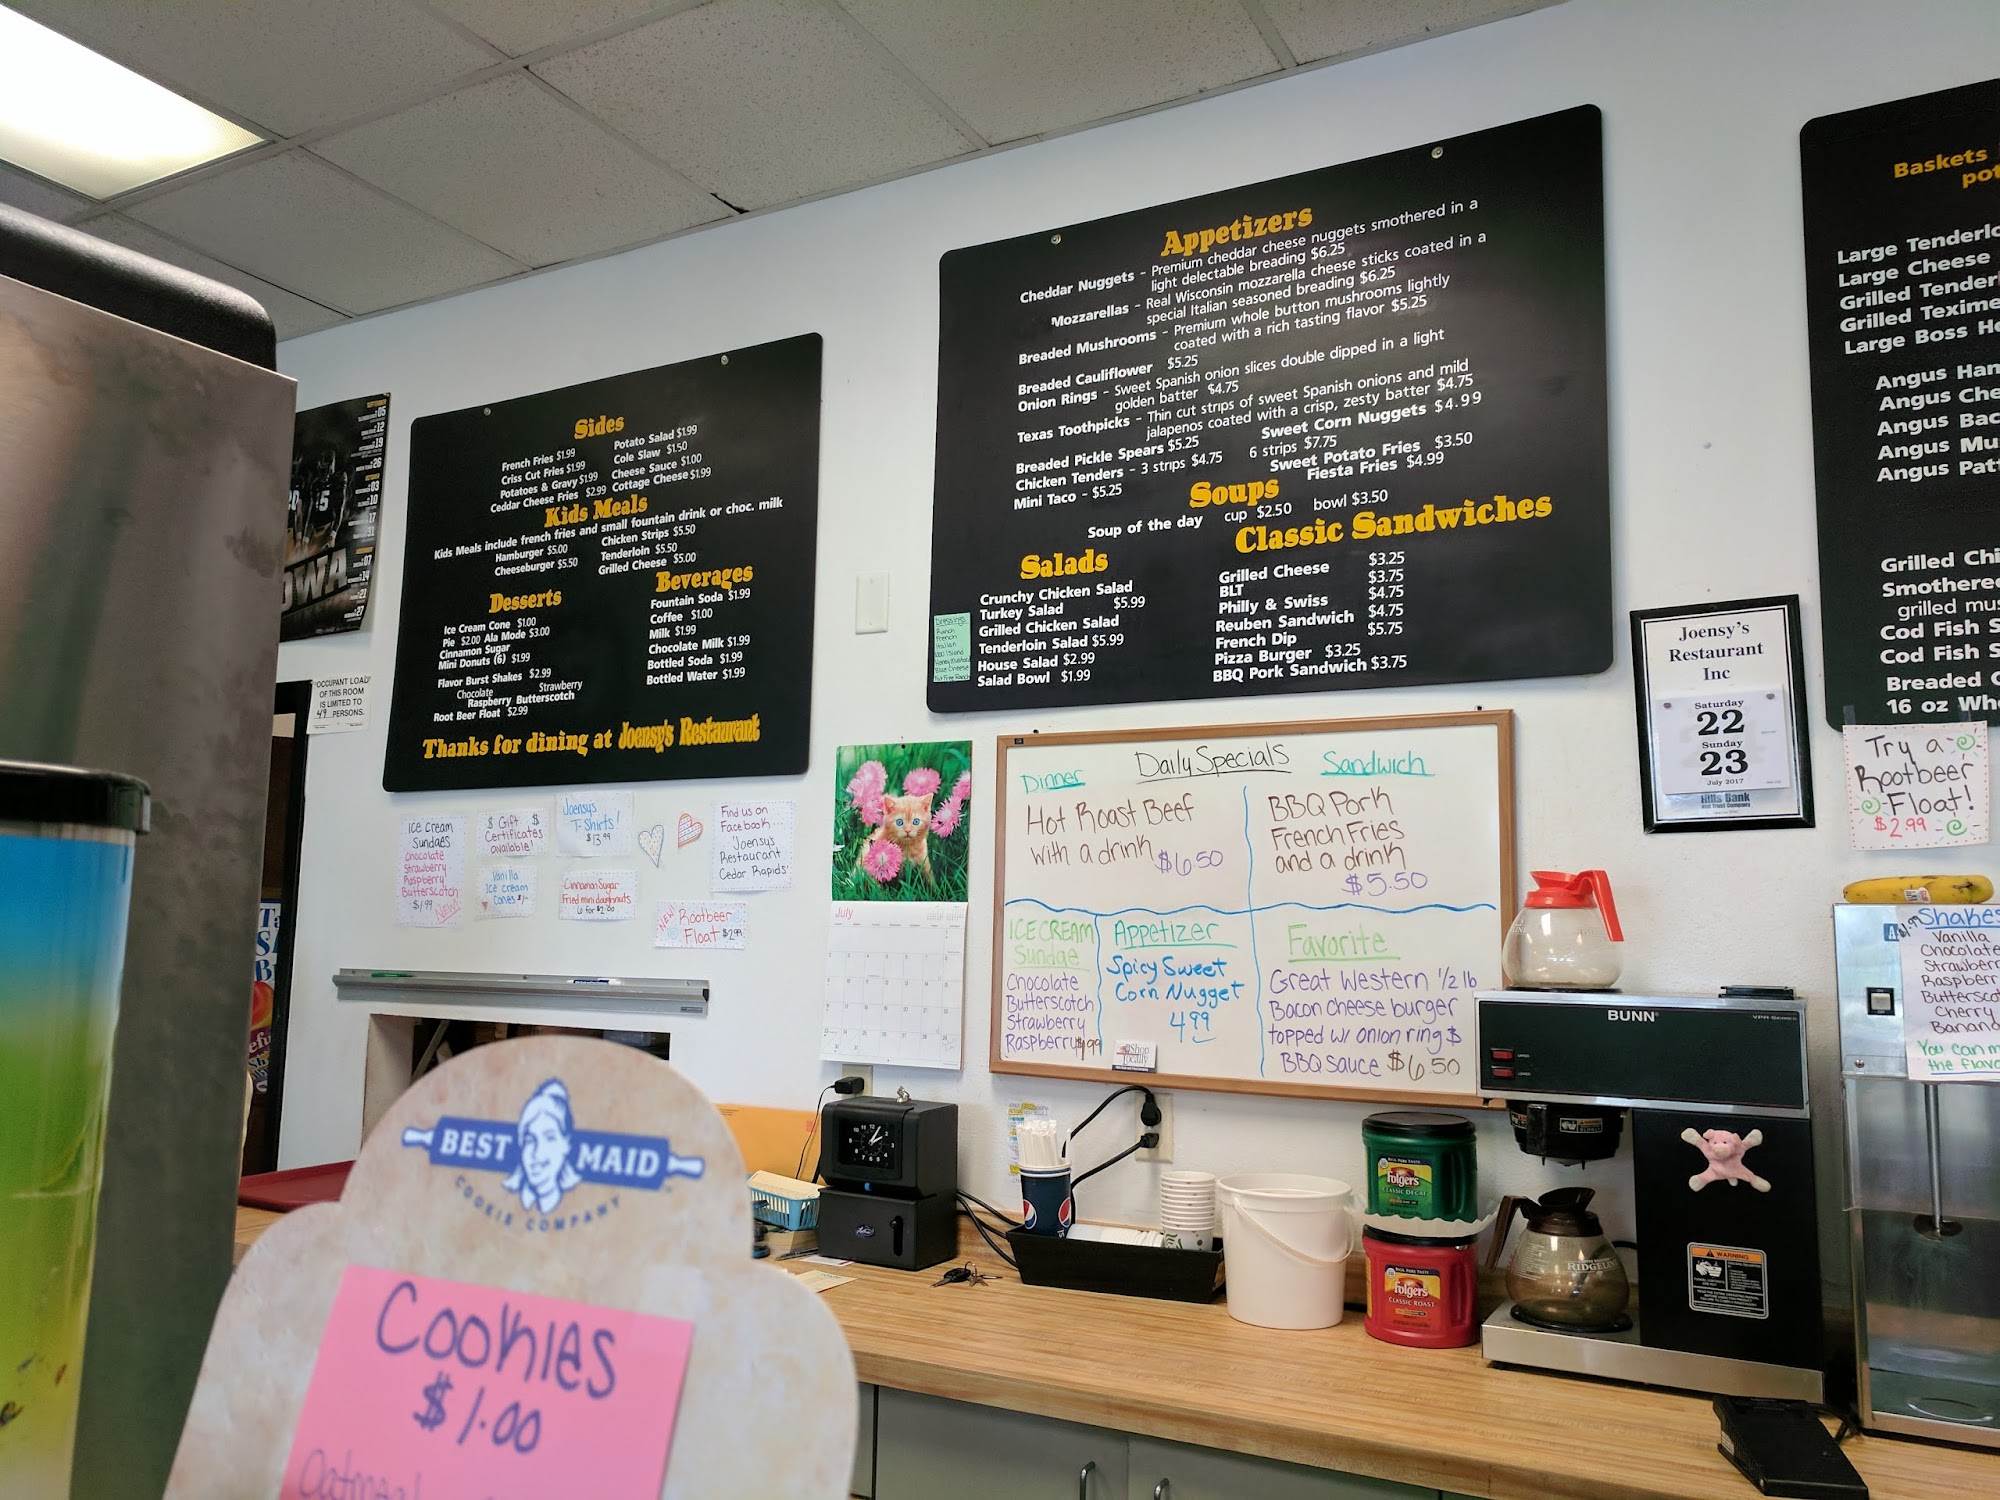 Sides
French Fries $1.99
Criss Cut Fries $1.99
Potatoes & Gravy $1.99
Ceddar Cheese Fries $2.99
Potato Salad $1.99
Cole Slaw $1.50
Cheese Sauce $1.00
Cottage Cheese $1.99
Kids Meals
Kids Meals include french fries and small fountain drink or choc. milk
Hamburger $5.00
Cheeseburger $5.50
Chicken Strips $5.50
Tenderloin $5.50
Grilled Cheese $5.00
Desserts
Ice Cream Cone $1.00
Pie $2.00 Ala Mode $3.00
Cinnamon Sugar
Mini Donuts (6) $1.99
Flavor Burst Shakes $2.99
Chocolate Strawberry
Raspberry Butterscotch
Root Beer Float $2.99
Beverages
Fountain Soda $1.99
Coffee $1.00
Milk $1.99
Chocolate Milk $1.99
Bottled Soda $1.99
Bottled Water $1.99
Thanks for dining at Joensy's Restaurant
Appetizers
Cheddar Nuggets - Premium cheddar cheese nuggets smothered in a
light delectable breading $6.25
Mozzarellas - Real Wisconsin mozzarella cheese sticks coated in a
special Italian seasoned breading $6.25
Breaded Mushrooms - Premium whole button mushrooms lightly
coated with a rich tasting flavor $5.25
Breaded Cauliflower $5.25
Onion Rings - Sweet Spanish onion slices double dipped in a light
golden batter $4.75
Texas Toothpicks - Thin cut strips of sweet Spanish onions and mild
jalapenos coated with a crisp, zesty batter $4.75
Breaded Pickle Spears $5.25
Sweet Corn Nuggets $4.99
Chicken Tenders - 3 strips $4.75 6 strips $7.75
Mini Taco - $5.25
Sweet Potato Fries $3.50
Fiesta Fries $4.99
Soups
Soup of the day cup $2.50 bowl $3.50
Salads
Crunchy Chicken Salad
Turkey Salad $5.99
Grilled Chicken Salad
Tenderloin Salad $5.99
House Salad $2.99
Salad Bowl $1.99
Classic Sandwiches
Grilled Cheese $3.25
BLT $3.75
Philly & Swiss $4.75
Reuben Sandwich $4.75
French Dip $5.75
Pizza Burger $3.25
BBQ Pork Sandwich $3.75
Dressings
Ranch
French
Italian
1000 Island
Honey Mustard
Blue Cheese
Fat Free Ranch
Baskets
Large
Large Cheese
Grilled
Grilled
Large Boss
Angus
Angus
Angus
Angus
Angus
Grilled
Smothered
grilled
Cod Fish
Cod Fish
Breaded
16 oz
Joensy's
Restaurant
Inc
Saturday
22
Sunday
23
July 2017
Hills Bank
and Trust Company
Try a
Rootbeer
Float!
$2.99
$1.99
Shakes
Vanilla
Chocolate
Strawberry
Raspberry
Butterscotch
Cherry
Banana
You can
the
Daily Specials
Dinner
Hot Roast Beef
with a drink $6.50
Sandwich
BBQ Pork
French Fries
and a drink
$5.50
ICE CREAM
Sundae
Chocolate
Butterscotch
Strawberry
Raspberry $1.99
Appetizer
Spicy Sweet
Corn Nugget
4.99
Shop
Locally
Favorite
Great Western 1/2 lb
Bacon cheese burger
topped w/ onion ring &
BBQ sauce $6.50
05
12
19
26
03
10
17
31
07
14
21
27
OCCUPANT LOAD
OF THIS ROOM
IS LIMITED TO
49 PERSONS.
Ice Cream
Sundaes
Chocolate
Strawberry
Raspberry
Butterscotch
$1.99 NEW!
$ Gift $
Certificates
available!
Joensy's
T-Shirts!
$13.99
Find us on
Facebook...
'Joensy's
Restaurant
Cedar Rapids'
Vanilla
Ice cream
Cones $1-
Cinnamon Sugar
Fried mini doughnuts
6 for $2.00
NEW! Rootbeer
Float $2.99
July
BUNN
WARNING
RIDGELINE
Folgers
CLASSIC DECAF
Folgers
CLASSIC ROAST
BEST MAID
COOKIE COMPANY
Cookies
$1.00